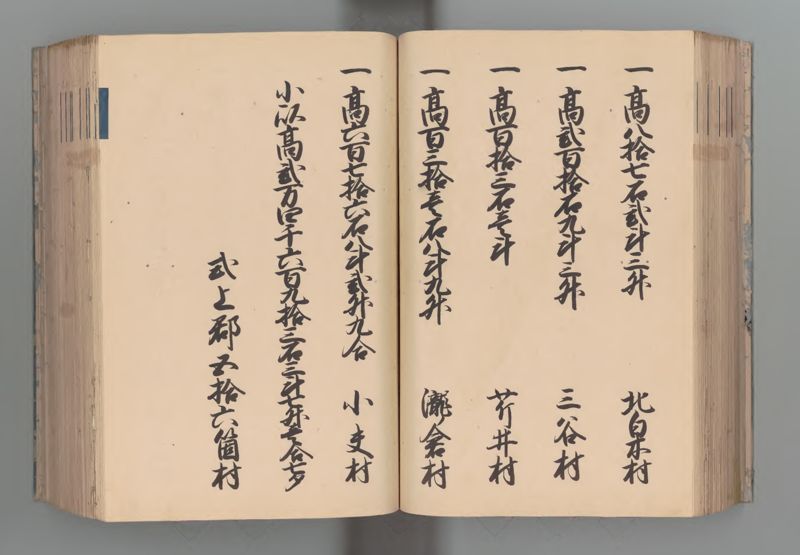 一高八拾七石弐斗三升 北白木村
一高弐百拾石九斗三升 三谷村
一高百拾三石壱斗 芹井村
一高百三拾壱石八斗九升 瀧倉村
一高六百七拾六石八斗弐升九合 小夫村
小以高弐万四千六百九拾三石三斗七升壱合七夕
式上郡五拾六箇村